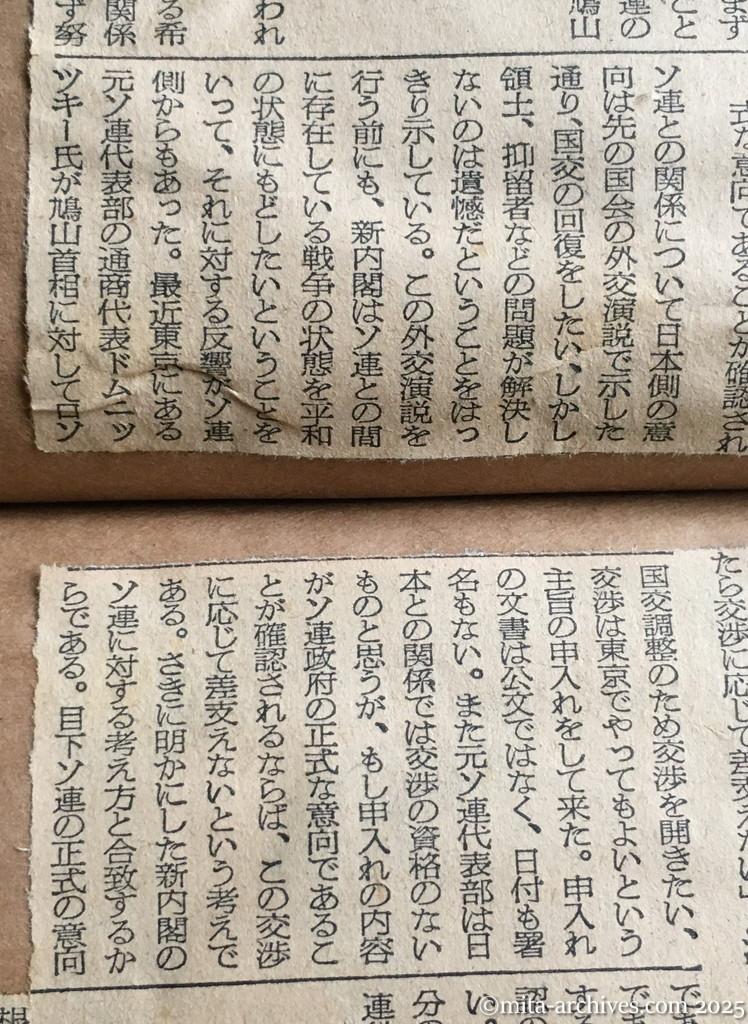 まず
こと
連の
鳩山
われ
る希
関係
ず努
式な意向であることが確認され
ソ連との関係について日本側の意
向は先の国会の外交演説で示した
通り、国交の回復をしたい、しかし
領土、抑留者などの問題が解決し
ないのは遺憾だということをはっ
きり示している。この外交演説を
行う前にも、新内閣はソ連との間
に存在している戦争の状態を平和
の状態にもどしたいということを
いって、それに対する反響がソ連
側からもあった。最近東京にある
元ソ連代表部の通商代表ドムニッ
ツキー氏が鳩山首相に対してロソ
たら交渉に応じて差支えない」
国交調整のため交渉を開きたい、
交渉は東京でやってもよいという
主旨の申入れをして来た。申入れ
の文書は公文ではなく、日付も署
名もない。また元ソ連代表部は日
本との関係では交渉の資格のない
ものと思うが、もし申入れの内容
がソ連政府の正式な意向であるこ
とが確認されるならば、この交渉
に応じて差支えないという考えで
ある。さきに明かにした新内閣の
ソ連に対する考え方と合致するか
らである。目下ソ連の正式の意向
でき
する
認の
い。
分の
連
©mita-archives.com 2025